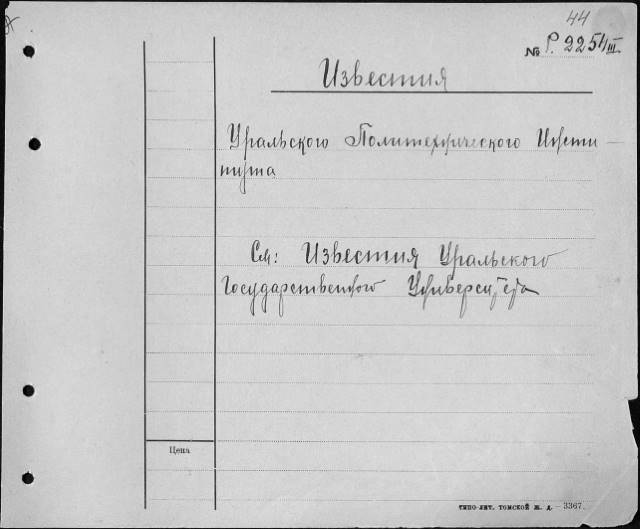 44
№ Р. 2254 III
Известия
Уральского Политехнического Инсти-
тута
См: Известия Уральского
Государственного Университета
Цена
ТИПО-ЛИТ. ТОМСКОЙ Ж. Д. — 3367.